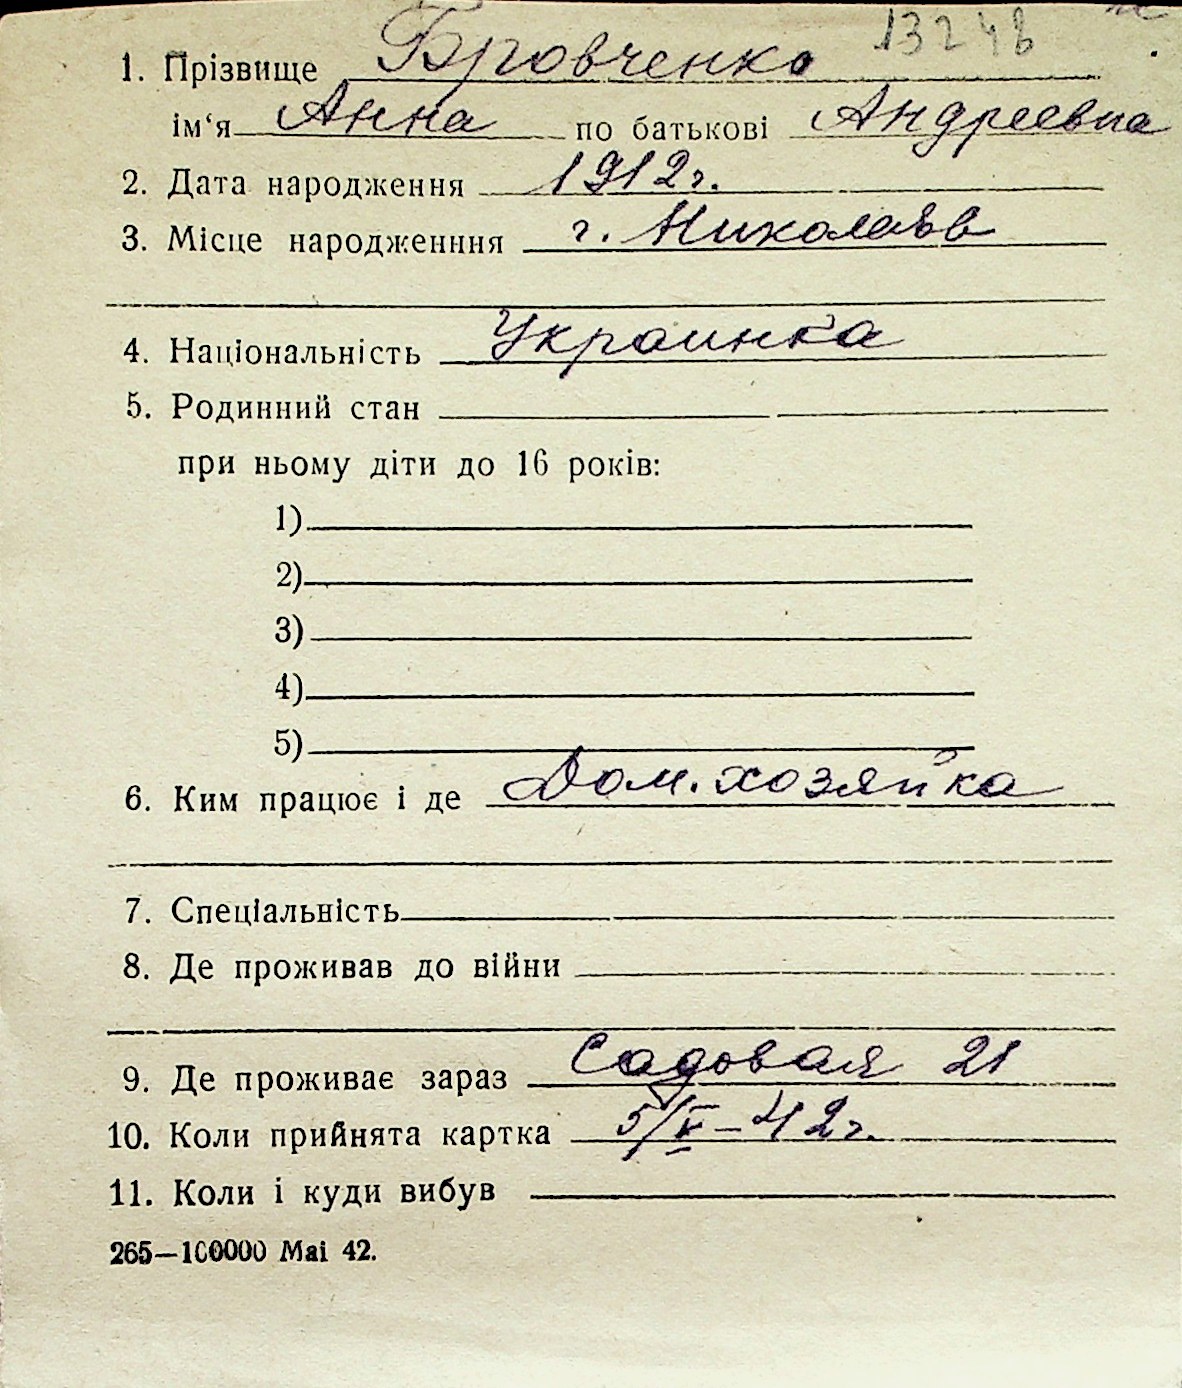 13248
1. Прізвище Бровченко
ім‘я Анна по батькові Андреевна
2. Дата народження 1912 г.
3. Місце народженння г. Николаев
4. Національність Украинка
5. Родинний стан
при ньому діти до 16 років:
1)
2)
3)
4)
5)
6. Ким працює і де Дом. хозяйка
7. Спеціальність
8. Де проживав до війни
9. Де проживає зараз Садовая 21
10. Коли прийнята картка 5/V–42 г.
11. Коли і куди вибув
265—100000 Mai 42.